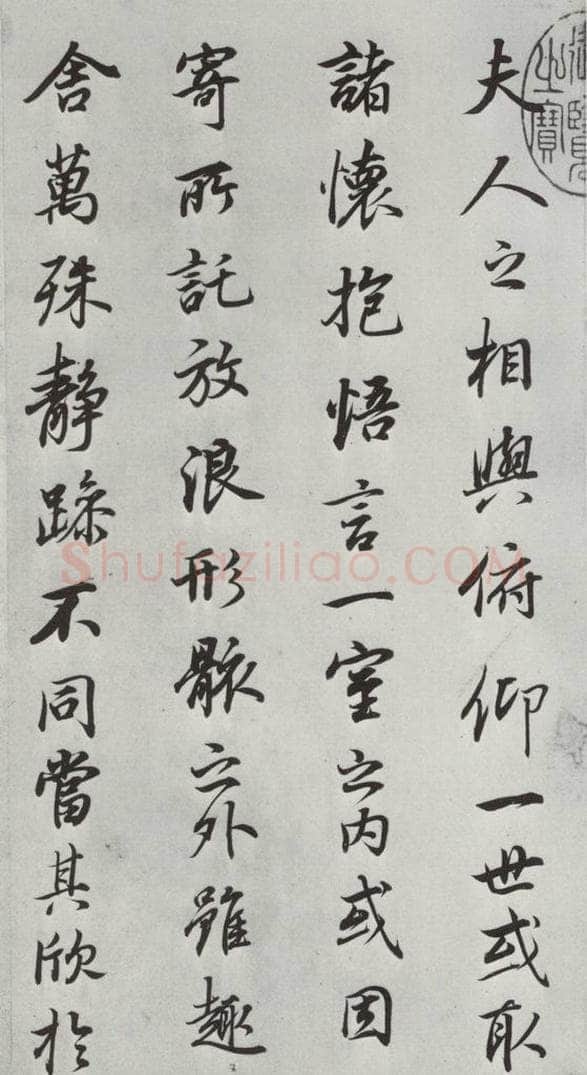 夫人之相與俯仰一世或取
諸懷抱悟言一室之内或因
寄所託放浪形骸之外雖趣
舍萬殊靜躁不同當其欣於
Shufaziliao.COM